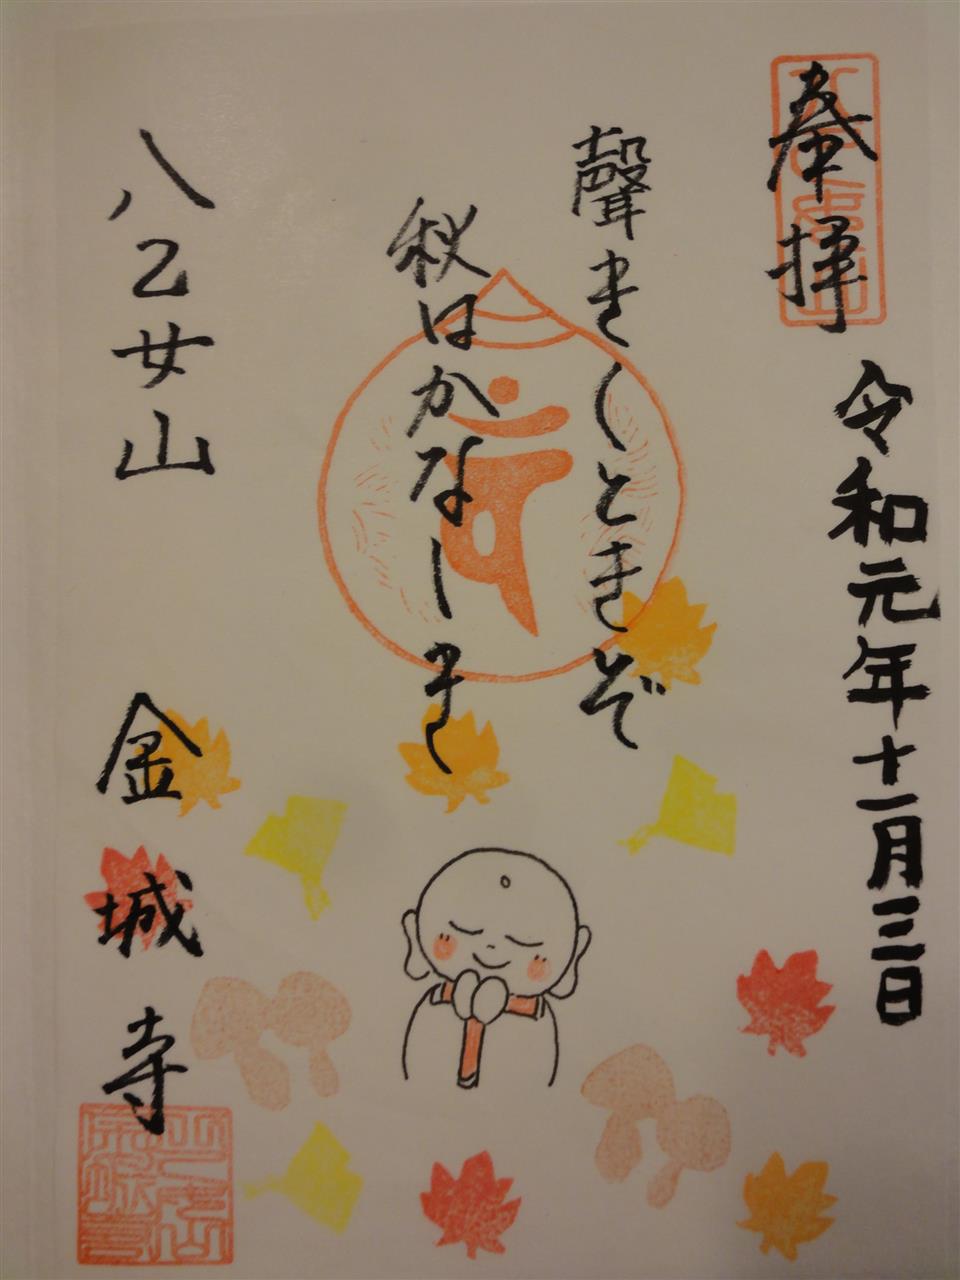 奉拝
令和元年十一月三日
聲きくときぞ
秋はかなしき
八乙女山
金城寺